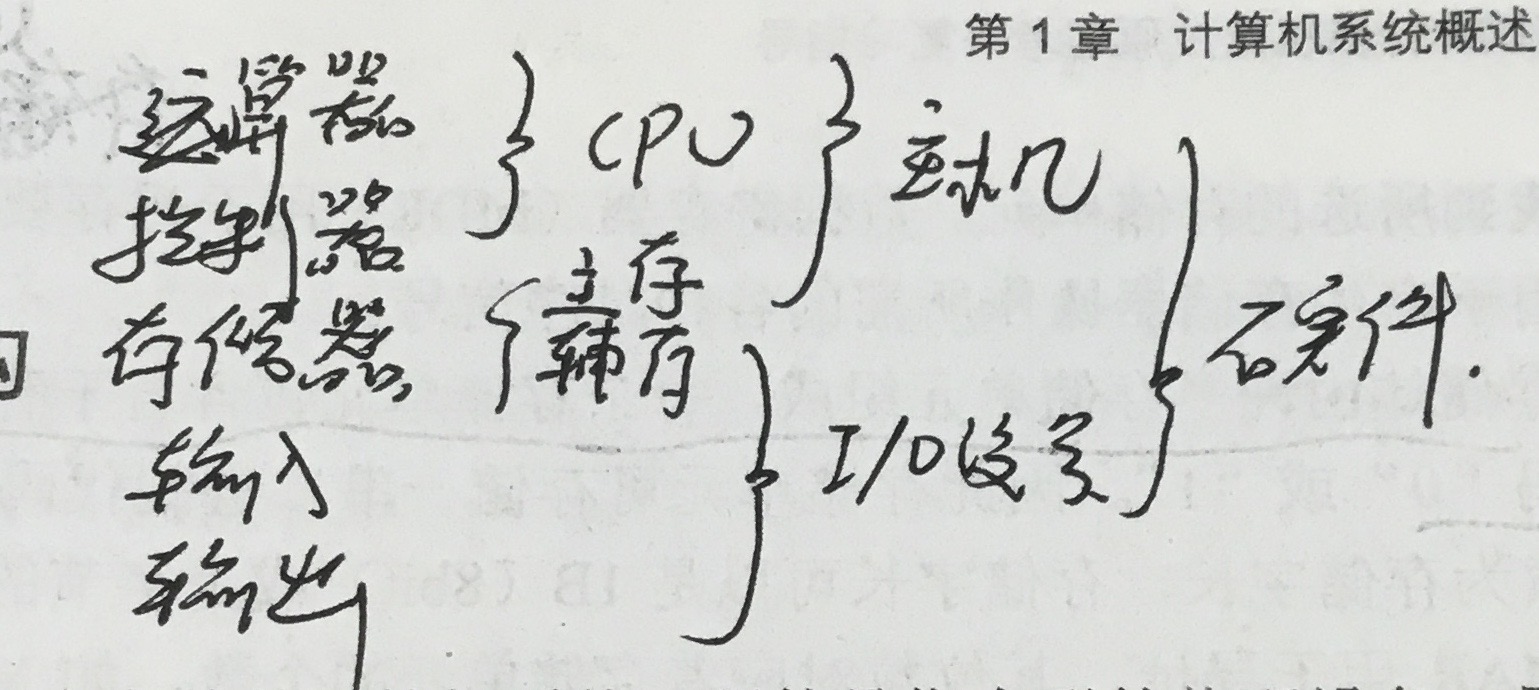 第1章 计算机系统概述
运算器 } CPU } 主机
控制器
存储器 { 主存
辅存
硬件.
输入
I/O设备
输出